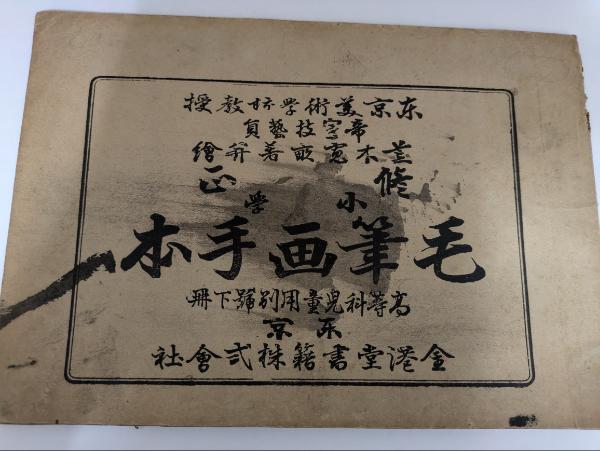 東京美術學校教授
帝室技藝員
荒木寛畝著并繪
修正
小學
毛筆画手本
高等科兒童用別號下冊
東京
金港堂書籍株式會社